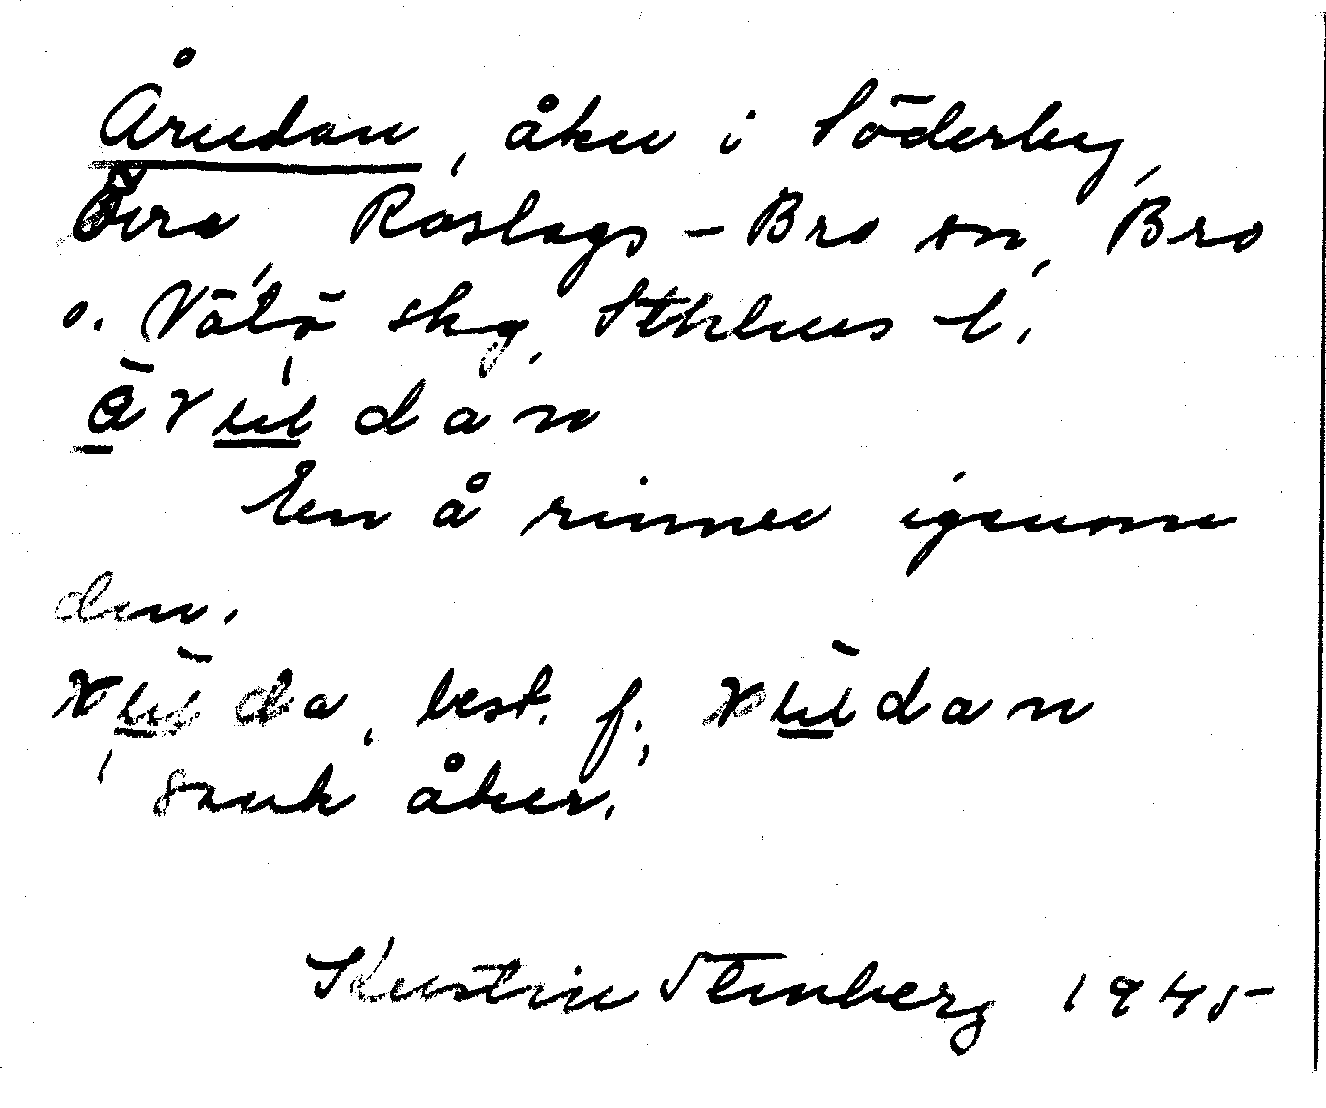 Årudan, åker i Söderby,
Övre, Roslags-Bro sn, Bro
o. Vätö skg, Sthlms l.
En å rinner igenom
den.
best. f.,
sank åker.
Kerstin Stenberg 1945